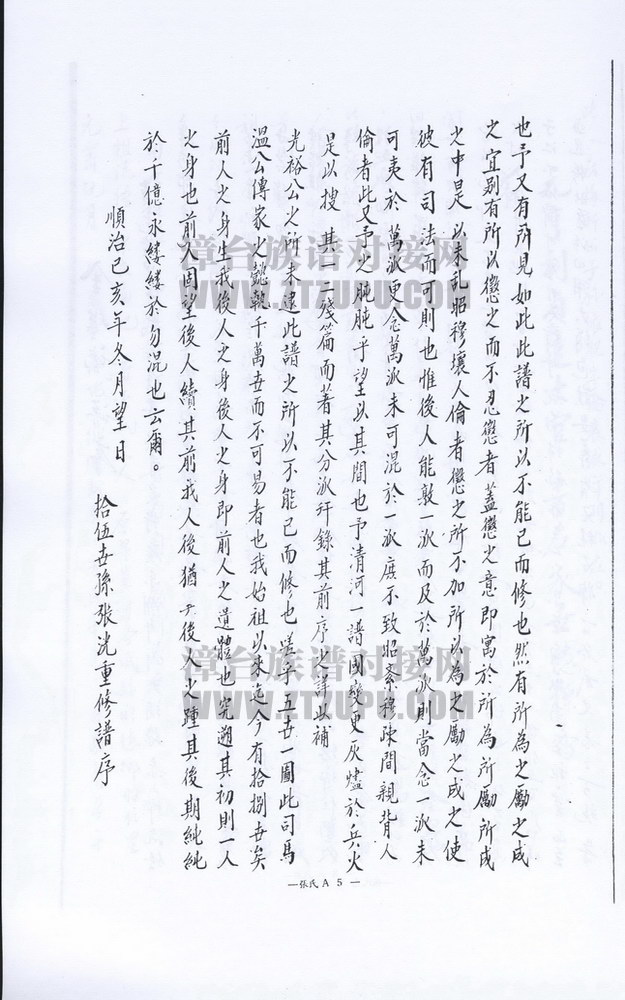 也予又有所見如此此譜之所以不能已而修也然有所為之勵之成
之宜别有所以懲之而不忍懲者蓋懲之意即寓於所為所勵所成
之中是以未乱昭穆壞人倫者懲之所不加所以為之勵之成之使
彼有司法而可則也惟後人能敦一派而及於萬派則當念一派未
可夷於萬派更念萬派未可混於一派庶不致昭紊穆疎間親背人
倫者此又予之肫肫乎望以其間也予清河一譜國變更灰燼於兵火
是以搜其一二殘篇而著其分派幷錄其前序之詳以補
光裕公之所未逮此譜之所以不能已而修也嗟乎五世一圖此司馬
溫公傳家之懿執千萬世而不可易者也我始祖以來迄今有拾捌世矣
前人之身生我後人之身後人之身即前人之遺體也究遡其初則一人
之身也前人固望後人續其前我人後猶望後人之踵其後期純純
於千億永縷縷於勿混也云爾。
順治己亥年冬月望日
拾伍世孫張沈重修譜序
—張氏A5—
漳台族谱对接网
WWW.ZTZUPU.COM
漳台族谱对接网
WWW.ZTZUPU.COM